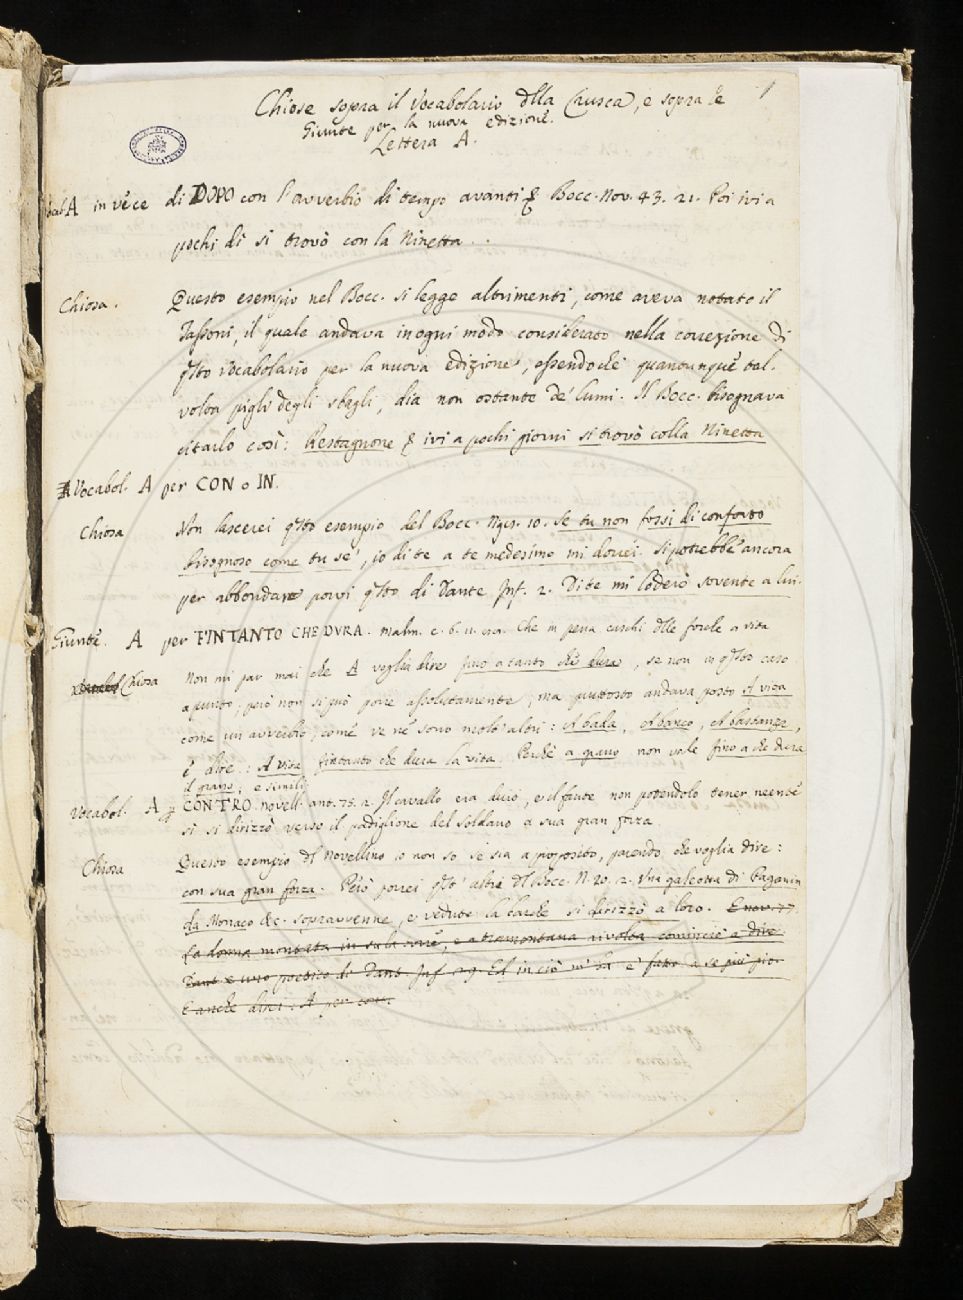 1
Chiose sopra il Vocabolario dlla Crusca, e sopra le
Giunte per la nuova edizione.
Lettera A.
Vocab. A in vece di DOPO con l'avverbio di tempo avanti Bocc. Nov. 43. 21. Poi ivi a
pochi dì si trovò con la Ninetta..
Chiosa. Questo esempio nel Bocc. si legge altrimenti, come aveva notato il
Tassoni, il quale andava in ogni modo considerato nella correzione di
qsto Vocabolario per la nuova edizione, essendochè quantunque tal-
volta pigli degli sbagli, dia non ostante de' lumi. Il Bocc. bisognava
citarlo così: Restagnone ivi a pochi giorni si trovò colla Ninetta
Vocabol. A per CON o IN.
Chiosa Non lascerei qsto esempio del Bocc. 10. Se tu non fossi di conforto
bisognoso come tu se', io di te a te medesimo mi dorrei. Si potrebbe ancora
per abbondare porvi qsto di Dante Inf. 2. Di te mi loderò sovente a lui.
Giunte. A per FINTANTO CHE DURA. Malm. c. 6. Che in pena caschi dlle forche a vita
Chiosa Non mi par mai che A voglia dire fino a tanto che dura, se non in qsto caso
apunto, però non si può porre assolutamente, ma piuttosto andava posto A vita
come un avverbio, come ve ne sono molti altri: A bada, A banco, A bastanza,
e altre: A vita fintanto che dura la vita. Perchè a grano non vale fino a che dura
il grano, e simili
Vocabol. A p CONTRO. Novell. ant. 75. 2. Il cavallo era duro, e il fante non potendolo tener neente
si si dirizzò verso il padiglione del Soldano a sua gran forza.
Chiosa Questo esempio dl Novellino io non so se sia a proposito, parendo che voglia dire:
con sua gran forza. Però porrei qsto altro dl Bocc. N. 20. 2. Una galeotta di Paganin
da Monaco &c. sopravvenne, e vedute la barche si dirizzò a loro. E nov. 77.
La donna montata in su la torre, e a tramontana rivolta cominciò a dire
Dant. Inf. 29. Ed in ciò m'ha e' fatto a se più pio.
E anche dirci: A per con.